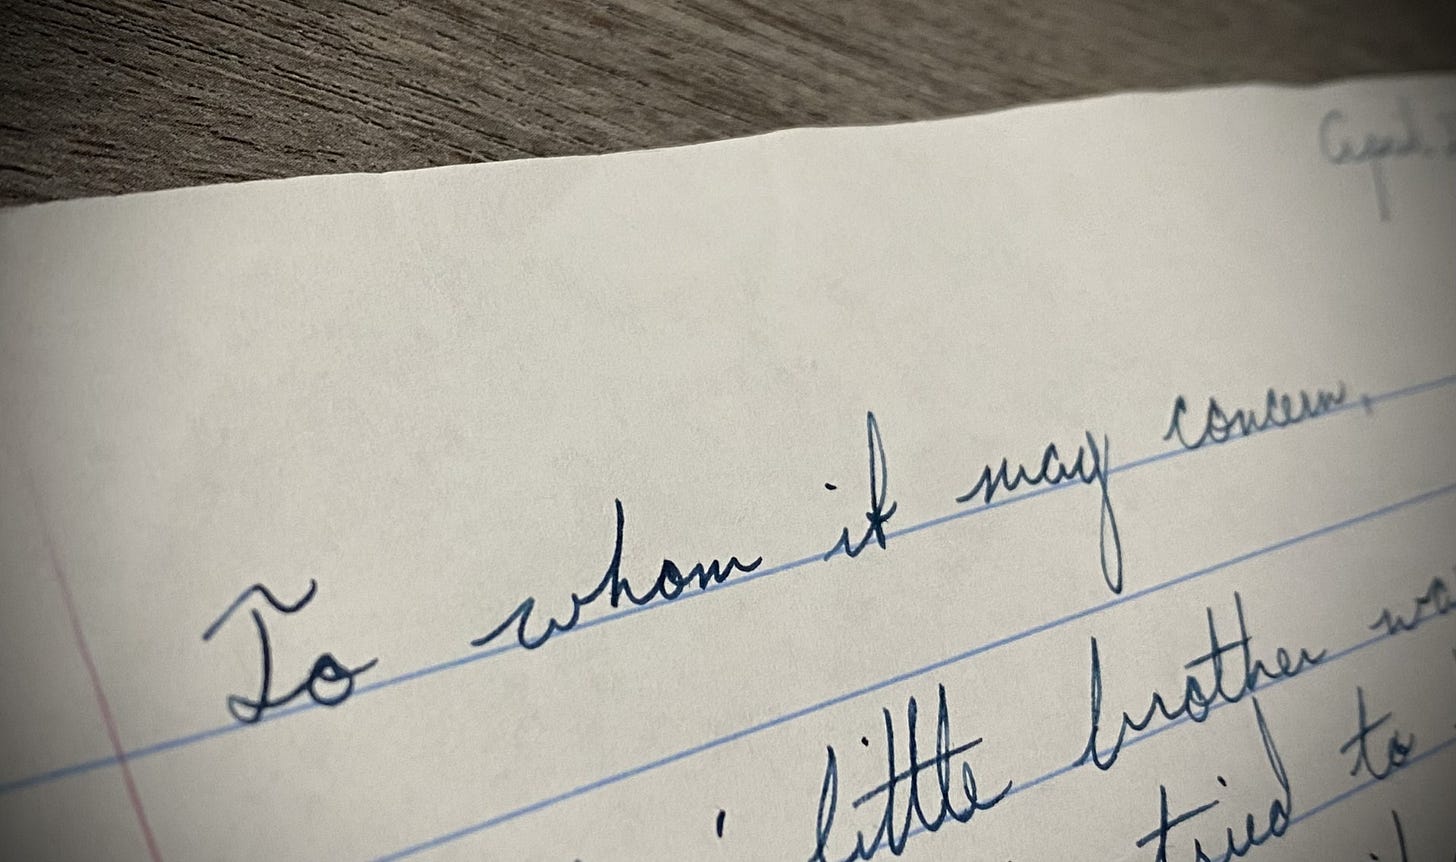 April
To whom it may concern,
little brother
tried to